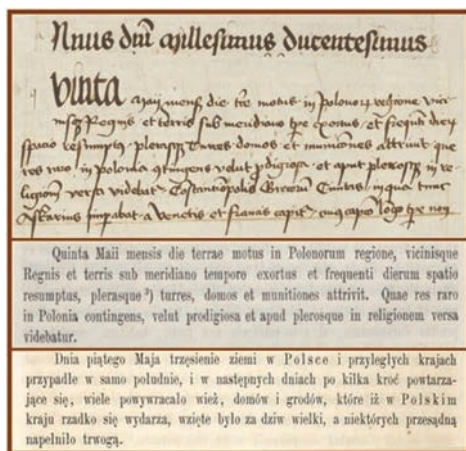 Nnus dm̄ Millesimus ducentesimus
Vinta Maij mens̄ die tre motus in Polonorꝝ regione vici
nisqꝫ Regnis et terris sub meridiano tpre exortus et frequēti dierū
spacio resumptus plerasqꝫ Turres domos et municiones attriuit que
res raro in polonia cōtingens velut prodigiosa et aput plerosqꝫ in re
ligionē versa videbatᷣ Grecorū Ciuitas in qua tunc
imperabat a Venetis et capitᷣ tpre non
Quinta Maii mensis die terrae motus in Polonorum regione, vicinisque
Regnis et terris sub meridiano tempore exortus et frequenti dierum spatio
resumptus, plerasque ²) turres, domos et munitiones attrivit. Quae res raro
in Polonia contingens, velut prodigiosa et apud plerosque in religionem versa
videbatur.
Dnia piątego Maja trzęsienie ziemi w Polsce i przyległych krajach
przypadłe w samo południe, i w następnych dniach po kilka kroć powtarza-
jące się, wiele powywracało wież, domów i grodów, które iż w Polskim
kraju rzadko się wydarza, wzięte było za dziw wielki, a niektórych przesądną
napełniło trwogą.